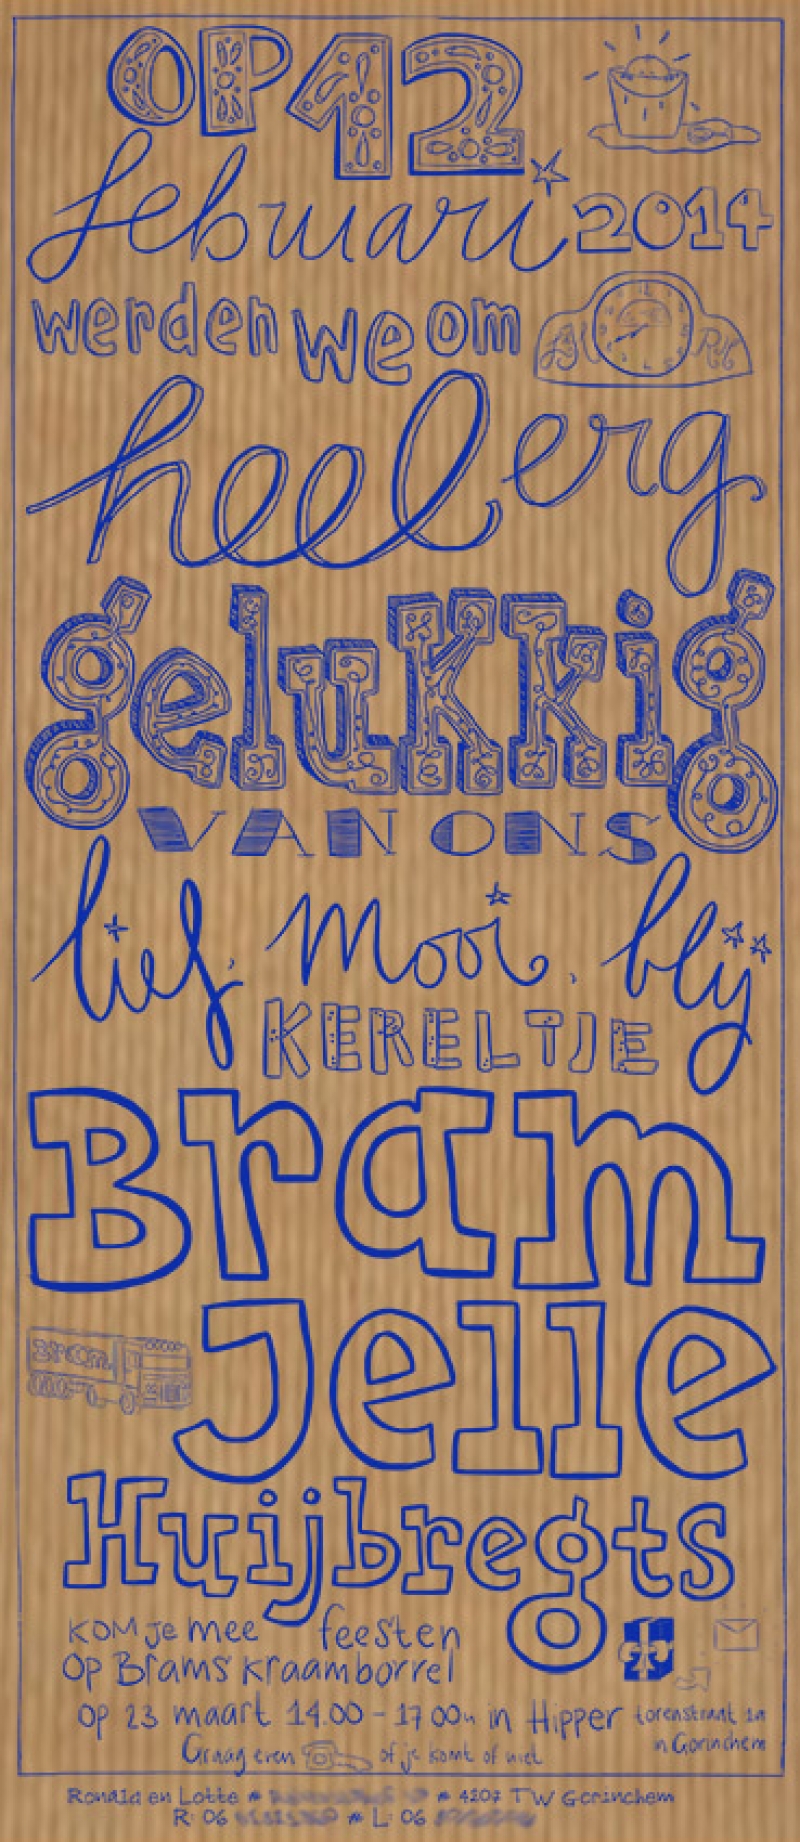 OP 12
februari 2014
werden we om
heel erg
gelukkig
VAN ONS
lief, mooi, blij
KERELTJE
Bram
Bram
Jelle
Huijbregts
KOM Je mee feesten
op Brams kraamborrel
op 23 maart 14.00 - 17.00u in Hipper torenstraat 1a
in Gorinchem
Graag even of je komt of niet
Ronald en Lotte * * 4207 TW Gorinchem
R: 06 * L: 06